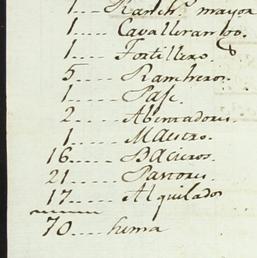 1.... Ranch.º mayor
1.... Cavallerango.
1.... Tortillero.
5.... Rancheros.
1.... Pase.
2... Abentadores.
1..... Maestro.
16.... Bacieros.
21.... Pastores
17.... Alquilados
70... suma